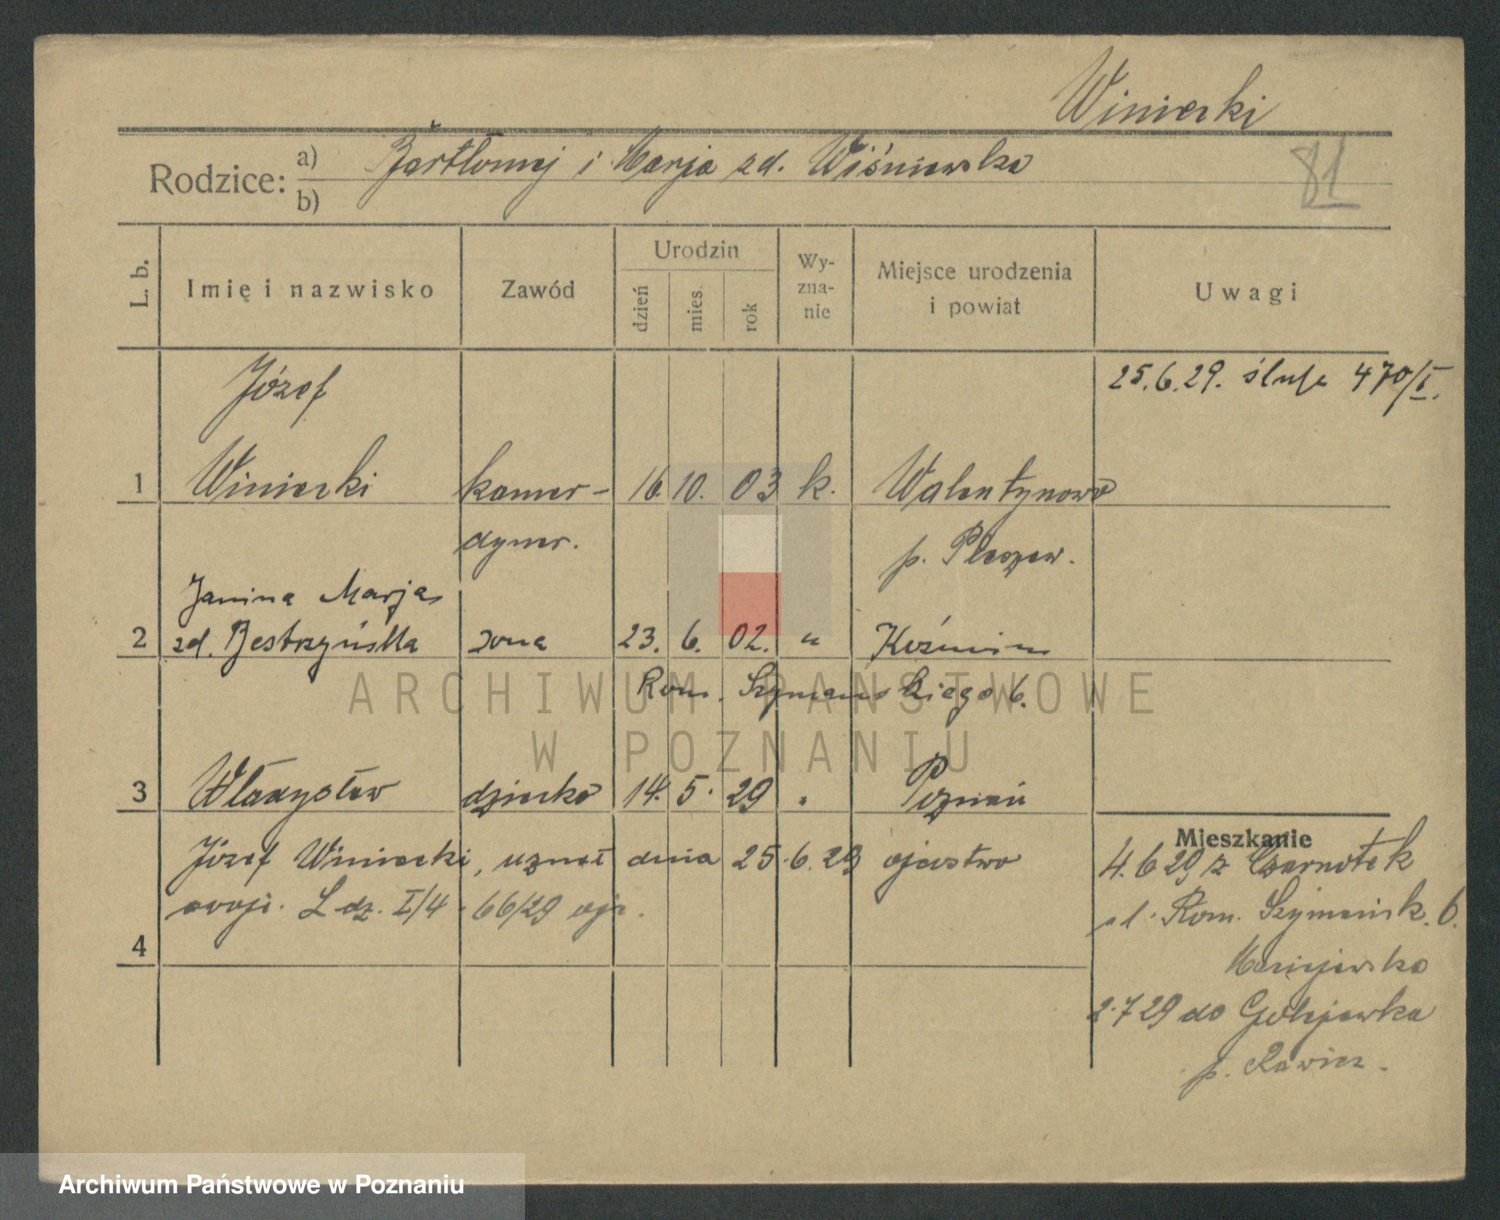 Winiecki
Rodzice: a) Bartłomiej i Marja zd. Wiśniewska
b)
81
L. b.
Imię i nazwisko
Zawód
Urodzin
dzień
mies.
rok
Wy-
zna-
nie
Miejsce urodzenia
i powiat
Uwagi
Józef
25.6.29. ślub 470/I.
1 Winiecki kamer- 16 10. 03 k. Walentynowo
dyner. p. Pleszew.
Janina Marja
2 zd. Bestrzyńska żona 23. 6. 02. " Koźmin
Rom. Szymańskiego 6.
ARCHIWUM PAŃSTWOWE
W POZNANIU
3 Władysław dziecko 14. 5. 29 " Poznań
Józef Winiecki, uznał dnia 25.6.29 ojcostwo
swoje. L dz. I/4 66/29 ojc.
4
Mieszkanie
4.6 29 z Czarnotek
ul. Rom. Szymańsk. 6.
Maciejewska
2.7 29 do Golejewka
p. Rawicz.
Archiwum Państwowe w Poznaniu